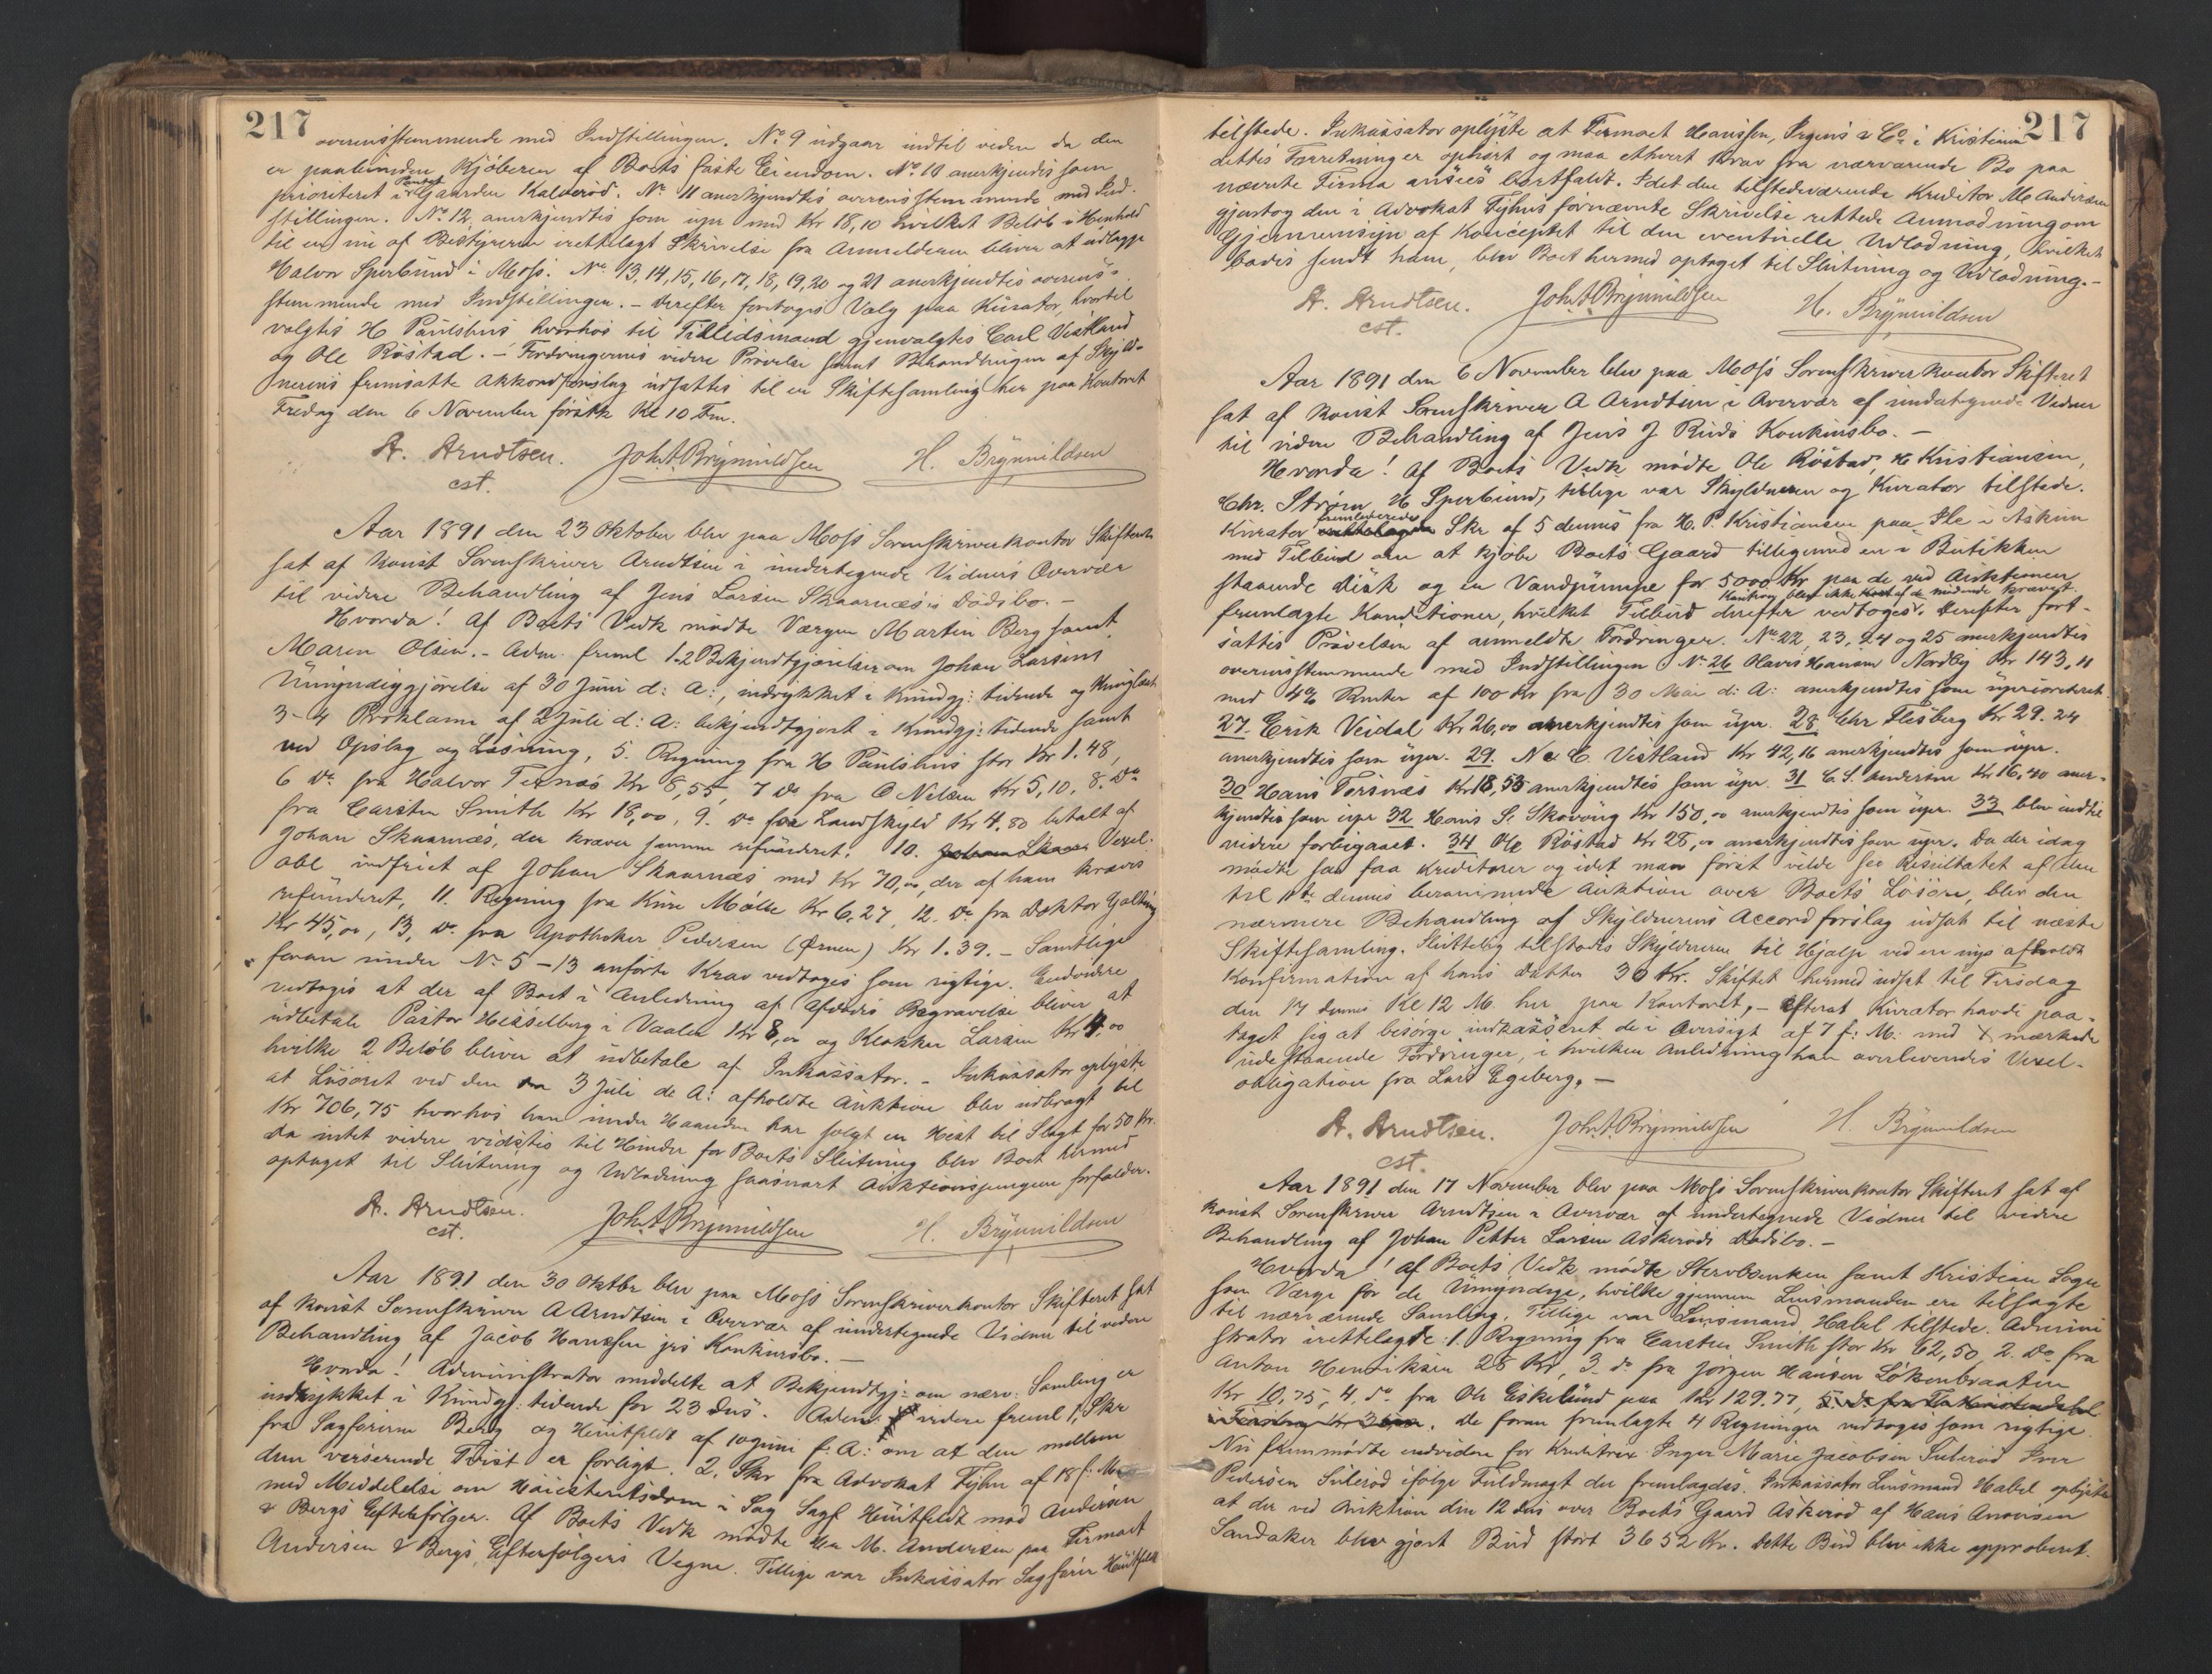 217
overensstemmende med Indstillingen. No 9 udgaar indtil videre da den
er paalignden Kjöberen af Boets faste Eiendom. No 10 anerkjendtes som
prioriteret i Pantet Gaarden Kalveröd. No 11 anerkjendtes overensstemmende med Ind-
stillingen. No 12 anerkjendtes som upr med Kr 18,10 hvilket Belöb i Henhold
til en nu af Bestyreren irettelagt Skrivelse fra Anmelderen bliver at udlægge
Halvor Sperbund i Moss. No 13, 14, 15, 16, 17, 18, 19, 20 og 21 anerkjendtes overens-
stemmende med Indstillingen. – Derefter foretoges Valg paa Kurator, hvortil
valgtes H Paulshus hvorhos til Tillidsmænd gjenvalgtes Carl Vestland
og Ole Röstad. – Fordringernes videre Prövelse samt Behandlingen af Skyld-
nerens fremsatte Akkordforslag udsattes til en Skiftesamling her paa Kontoret
Fredag den 6 November förstk Kl 10 Fm.
A. Arndtsen. Joh. A Brynmildsen H. Brynmildsen
cst.
Aar 1891 den 23 Oktober blev paa Moss Sorenskriverkontor Skifteret
sat af Konst Sorenskriver Arndtsen i undertegnede Vidners Overvær
til videre Behandling af Jens Larsen Skaarnæs's Dödsbo. –
Hvorda! Af Boets Vedk mödte Værgen Martin Berg samt
Maren Olsen. – Adm. freml 1-2 Bekjendtgjörelser om Johan Larsens
Umyndiggjörelse af 30 Juni d: A:, indrykket i Kundgj: tidende og
3-4 Proklama af 2 Juli d: A: bekjendtgjort i Kundgj: tidende samt
ved Opslag og Læsning, 5. Regning fra H Paulshus stor Kr 1.48,
6 Do fra Halvor Ternæs Kr 8,55, 7 Do fra O Nilsen Kr 5,10, 8. Do
fra Carsten Smith Kr 18,00, 9. Do for Landskyld Kr 4.80 betalt af
Johan Skaarnæs, der kræver samme refunderet. 10. Johan Skaar Vexel-
obl indfriet af Johan Skaarnæs med Kr 70,00, der af ham kræves
refunderet, 11. Regning fra Kure Mölle Kr 6.27, 12. Do fra Doktor Galtung
Kr 45,00, 13, Do fra Apotheker Pedersen (Ørnen) Kr 1.39. – Samtlige
foran under No 5-13 anförte Krav vedtoges som rigtige. Endvidere
vedtoges at der af Boet i Anledning af Afdödes Begravelse bliver at
udbetale Pastor Hesselberg i Vaaler Kr 8,00 og Klokker Larsen Kr 4.00
hvilke 2 Belöb bliver at udbetale af Inkassator. – Inkassator oplyste
at Lösöret ved den 3 Juli de A: afholdte Auktion blev udbragt til
Kr 706,75 hvorhos han under Haanden har solgt en Hest til Slagt for 50 Kr.
Da intet videre vidstes til Hinder for Boets Slutning blev Boet hermed
optaget til Slutning og Udlodning saasnart Auktionspengene forfalder.
A. Arndtsen. Joh. A Brynmildsen H. Brynmildsen
cst.
Aar 1891 den 30 Oktbr blev paa Moss Sorenskriverkontor Skifteret sat
af Konst Sorenskriver A Arndtsen i Overvær af undertegnede Vidner til videre
Behandling af Jacob Hanssen jrs Konkursbo. –
Hvorda! Administrator meddelte at Bekjendtgj: om nærv: Samling er
indrykket i Kundgj: tidende for 23 dns. Adm videre freml 1, Skr
fra Sagförerne Berg og Heuitfeldt af 10 Juni f: A: om at den mellem
dem verserende Tvist er forligt. 2. Skr fra Advokat Fyhn af 18 f: M
med Meddelelse om Høiesteretsdom i Sag Sagf Heuitfeldt mod Andersen
& Bergs Efterfölger. Af Boets Vedk mödte Hr M. Andersen paa Firmaet
Andersen & Bergs Efterfölgers Vegne. Tillige var Inkassator Sagförer Heuitfeldt
217
tilstede. Inkassator oplyste at Firmaet Hanssen, Irgens & Co i Kristiania
dettes Forretning er ophört og maa ethvert Krav fra nærværende Bo paa
nævnte Firma ansees bortfaldt. Idet den tilstedeværende Kreditor M Andersen
gjentog den i Advokat Fyhns fornævnte Skrivelse rettede Anmodning om
Gjennemsyn af Konceptet til den eventuelle Udlodning, hvilket
bedes sendt ham, blev Boet hermed optaget til Slutning og Udlodning. –
A. Arndtsen. Joh. A Brynmildsen H. Brynmildsen
cst.
Aar 1891 den 6 November blev paa Moss Sorenskriverkontor Skifteret
sat af Konst Sorenskriver A Arndtsen i Overvær af undertegnede Vidner
til videre Behandling af Jens J Ruds Konkursbo. –
Hvorda! Af Boets Vedk mödte Ole Röstad, H Kristiansen,
Chr. Ström, H Sperbund, tillige var Skyldneren og Kurator tilstede.
Kurator fremleverede Skr af 5 dennes fra H. P. Kristiansen paa Ile i Askim
med Tilbud om at kjöbe Boets Gaard tilligemed en i Butikken
staaende Disk og en Vandpumpe for 5000 Kr paa de ved Auktionen
fremlagte Konditioner, hvilket Tilbud derefter vedtoges. Kaution blev ikke af de mödende krævet. Derefter fort-
sattes Prövelsen af anmeldte Fordringer. No 22, 23, 24 og 25 anerkjendtes
overensstemmende med Indstillingen No 26 Olavis Hansen Nordby Kr 143,11
med 4% Renter af 100 Kr fra 30 Mai d: A: anerkjendtes som uprioriteret.
27. Erik Veidal Kr 26,00 anerkjendtes som upr. 28 Chr Flesberg Kr 29.24
anerkjendtes som upr. 29. N & C. Vestland Kr 42,16 anerkjendtes som upr.
30 Hans Torsnæs Kr 18,55 anerkjendtes som upr. 31 C. S. Andersen Kr 16,40 aner-
kjendtes som upr 32 Hans S. Skoveng Kr 150,00 anerkjendtes som upr. 33 blev indtil
videre forbigaaet. 34 Ole Röstad Kr 28,00 anerkjendtes som upr. Da der idag
mödte saa faa Kreditorer og idet man först vilde se Resultatet af den
til 11te dennes berammede Auktion over Boets Lösöre, blev den
nærmere Behandling af Skyldnerens Accordforslag udsat til næste
Skiftesamling. Sluttelig tilstodes Skyldneren til Hjælp ved en nys afholdt
Konfirmation af hans Datter 30 Kr. Skiftet hermed udsat til Tirsdag
den 17 dennes Kl 12 M. her paa Kontoret, – efterat Kurator havde paa-
taget sig at besörge indkasseret de i Oversigt af 7 f: M: med X mærkede
udestaaende Fordringer, i hvilken Anledning han overleveredes Vexel-
obligation fra Lars Egeberg. –
A. Arndtsen. Joh. A. Brynmildsen H. Brynmildsen
cst.
Aar 1891 den 17 November blev paa Moss Sorenskriverkontor Skifteret sat af
Konst Sorenskriver Arndtsen i Overvær af undertegnede Vidner til videre
Behandling af Johan Petter Larsen Askeröds Dödsbo. –
Hvorda! Af Boets Vedk mödte Stervbsenken samt Kristian
som Værge for de Umyndige, hvilke gjennem Lensmanden ere tilsagte
til nærværende Samling. Tillige var Lensmand Habel tilstede. Admini
strator irettelagde: 1. Regning fra Carsten Smith stor Kr 62,50, 2. Do fra
Anton Henriksen 28 Kr, 3 do fra Jörgen Hansen Lökenbraaten
Kr 10,75, 4. do fra Ole Eskelund paa Kr 129.77,
De foran fremlagte 4 Regninger vedtoges som rigtige.
Nu fremmödte endvidere for Kreditrix Inger Marie Jacobsen Suleröd Iver
Pedersen Suleröd ifölge Fuldmagt der fremlagdes. Inkassator Lensmand Habel oplyste
at der ved Auktion den 12 dns over Boets Gaard Askeröd af Hans Andersen
Sandaker blev gjort Bud stort 3652 Kr. Dette Bud blev ikke approberet.